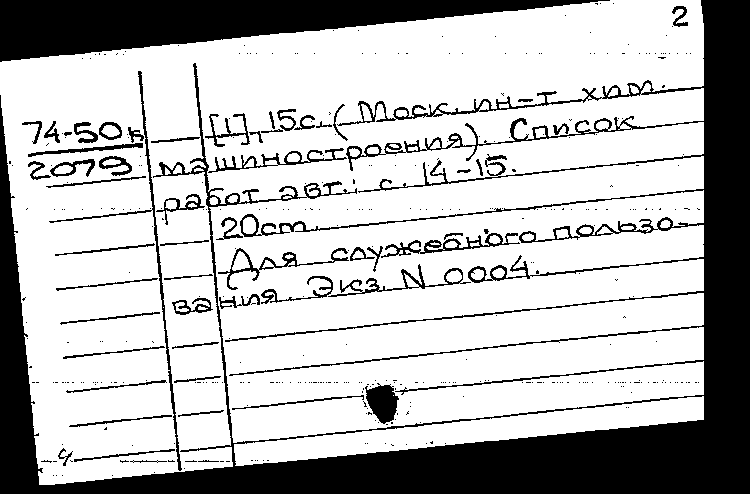 2
74-50в
2079
[1], 15с. (Моск. ин-т хим.
машиностроения). Список
работ авт.: с. 14-15.
20cm.
Для служебного пользо-
вания. Экз. N 0004.